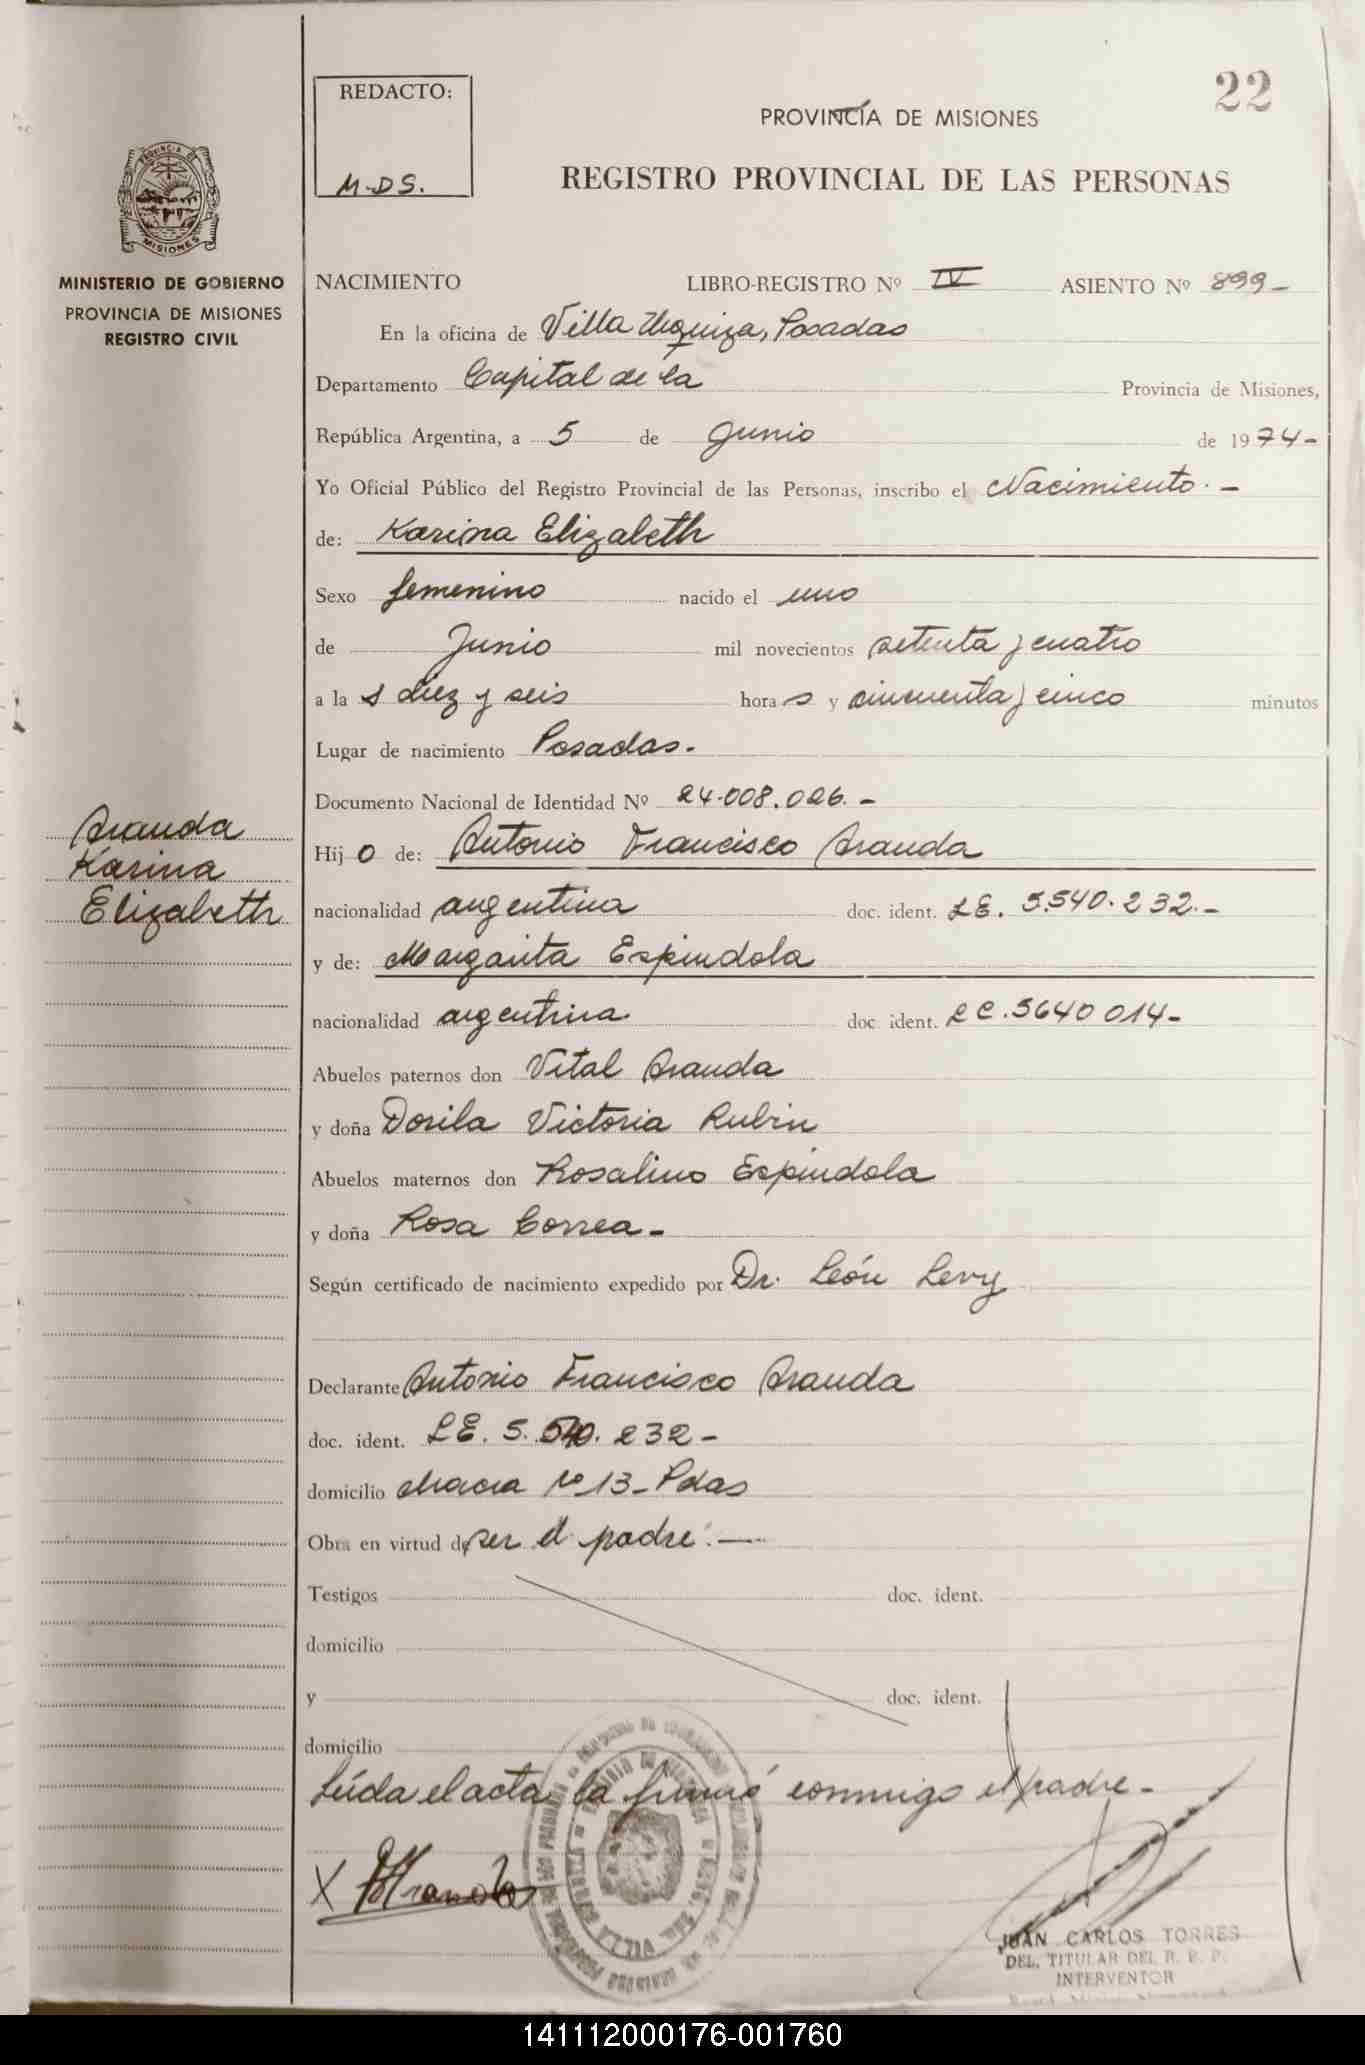 22
REDACTO:
M-DS.
PROVINCIA DE MISIONES
REGISTRO PROVINCIAL DE LAS PERSONAS
MISIONES
MINISTERIO DE GOBIERNO
PROVINCIA DE MISIONES
REGISTRO CIVIL
NACIMIENTO LIBRO-REGISTRO Nº IV ASIENTO Nº 899-
En la oficina de Villa Urquiza, Posadas
Departamento Capital de la Provincia de Misiones,
República Argentina, a 5 de Junio de 1974-
Yo Oficial Público del Registro Provincial de las Personas, inscribo el Nacimiento.-
de: Karina Elizabeth
Sexo femenino nacido el uno
de Junio mil novecientos setenta y cuatro
a la s diez y seis hora s y cincuenta y cinco minutos
Lugar de nacimiento Posadas.
Documento Nacional de Identidad Nº 24.008.026.-
Aranda
Karina
Elizabeth
Hij o de: Antonio Francisco Aranda
nacionalidad argentina doc. ident. LE. 5.540.232.-
y de: Margarita Espindola
nacionalidad argentina doc. ident. LC. 5640014-
Abuelos paternos don Vital Aranda
y doña Dorila Victoria Rubin
Abuelos maternos don Rosalino Espindola
y doña Rosa Correa-
Según certificado de nacimiento expedido por Dr. León Levy
Declarante Antonio Francisco Aranda
doc. ident. LE. 5.540.232-
domicilio chacra nº 13-Pdas
Obra en virtud de ser el padre.—
Testigos doc. ident.
domicilio
y doc. ident.
domicilio
Leída el acta, la firmó conmigo el padre-
X
VILLA URQUIZA
JUAN CARLOS TORRES
DEL. TITULAR DEL R. P. P.
INTERVENTOR
141112000176-001760